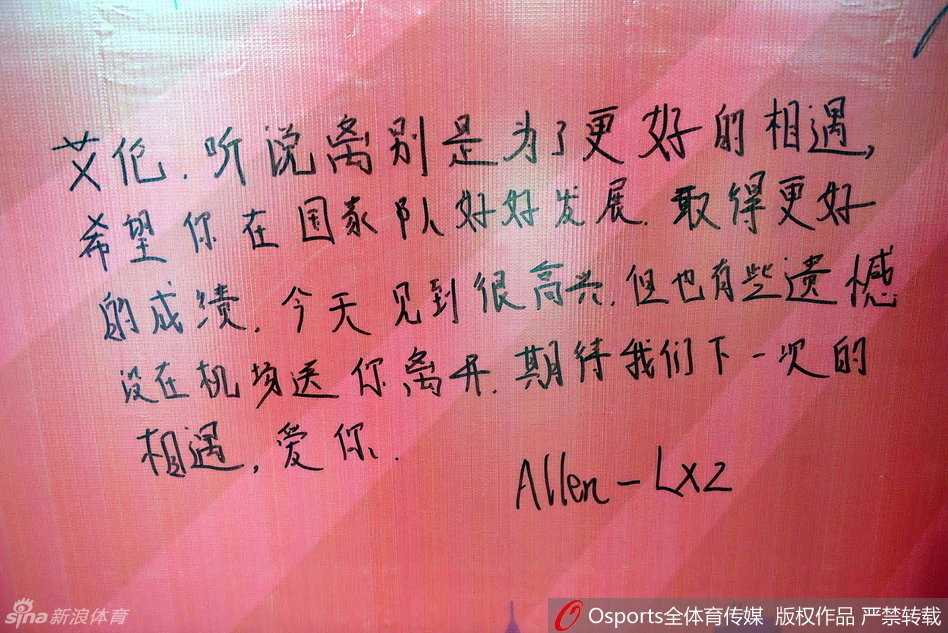 艾伦.听说离别是为了更好的相遇,
希望你在国家队好好发展.取得更好
的成绩.今天见到很高兴.但也有些遗憾
没在机场送你离开.期待我们下一次的
相遇,爱你.
Allen-Lxz
sina新浪体育
Osports全体育传媒 版权作品 严禁转载